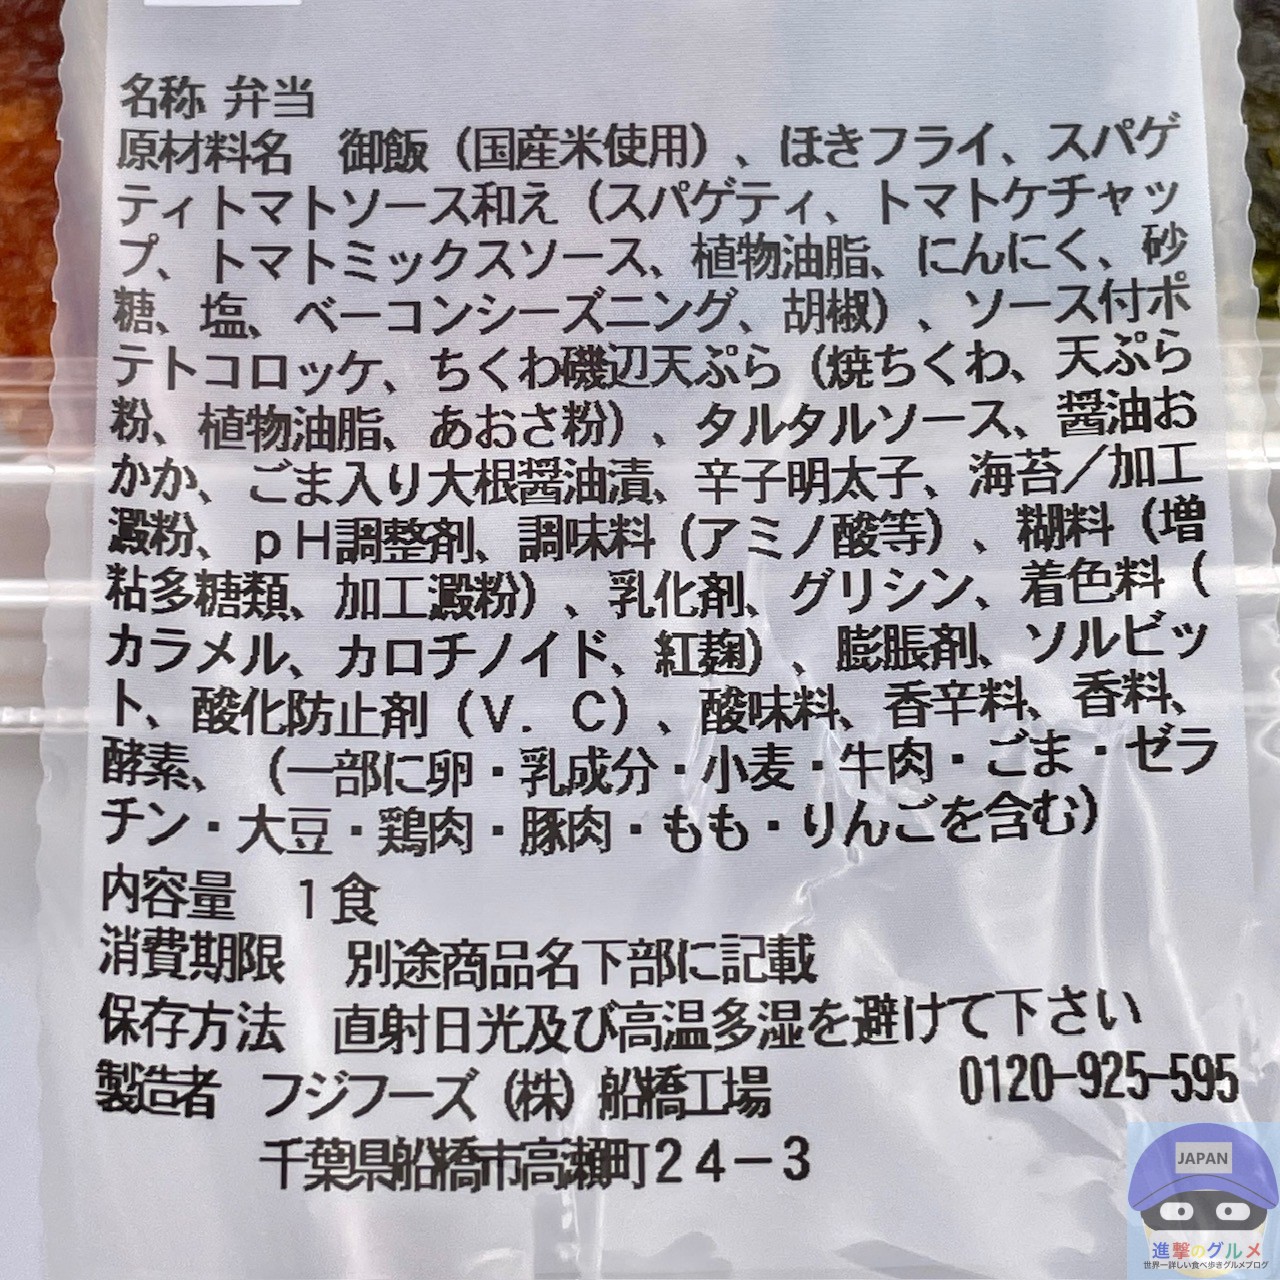 名称 弁当
原材料名 御飯（国産米使用）、ほきフライ、スパゲ
ティトマトソース和え（スパゲティ、トマトケチャッ
プ、トマトミックスソース、植物油脂、にんにく、砂
糖、塩、ベーコンシーズニング、胡椒）、ソース付ポ
テトコロッケ、ちくわ磯辺天ぷら（焼ちくわ、天ぷら
粉、植物油脂、あおさ粉）、タルタルソース、醤油お
かか、ごま入り大根醤油漬、辛子明太子、海苔／加工
澱粉、ｐＨ調整剤、調味料（アミノ酸等）、糊料（増
粘多糖類、加工澱粉）、乳化剤、グリシン、着色料（
カラメル、カロチノイド、紅麹）、膨脹剤、ソルビッ
ト、酸化防止剤（Ｖ．Ｃ）、酸味料、香辛料、香料、
酵素、（一部に卵・乳成分・小麦・牛肉・ごま・ゼラ
チン・大豆・鶏肉・豚肉・もも・りんごを含む）
内容量 １食
消費期限 別途商品名下部に記載
保存方法 直射日光及び高温多湿を避けて下さい
製造者 フジフーズ（株）船橋工場 0120-925-595
千葉県船橋市高瀬町２４－３
JAPAN
進撃のグルメ
世界一詳しい食べ歩きグルメブログ